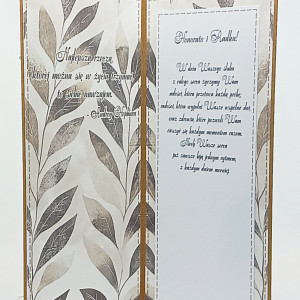 Najlepszą rzeczą,
której można się w życiu trzymać
to siebie nawzajem.
Audrey Hepburn
Honorato i Radku!
W dniu Waszego ślubu
z całego serca życzymy Wam
miłości, która przetrwa każdą próbę,
radości, która wypełni Wasze wspólne dni,
oraz zdrowia, które pozwoli Wam
cieszyć się każdym momentem razem.
Niech Wasze serca
już zawsze biją jednym rytmem,
z każdym dniem mocniej